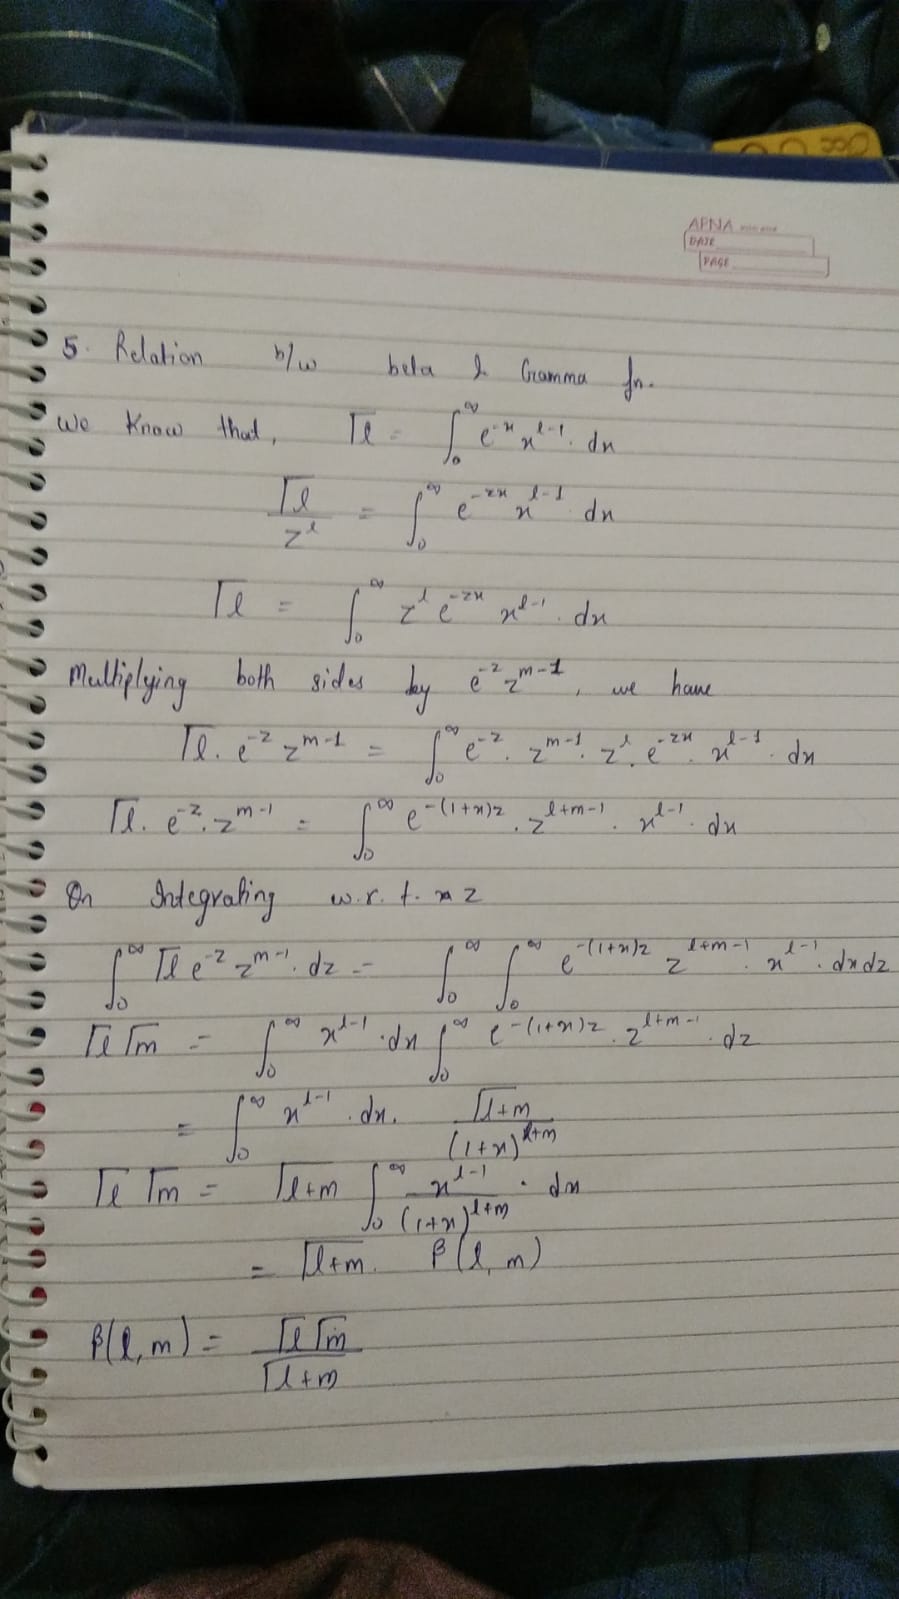 APNA
DATE
PAGE
5. Relation b/w beta & Gamma fn.
We Know that, Γl = ∫₀^∞ e^-x x^l-1 . dx
Γl / z^l = ∫₀^∞ e^-zx x^l-1 dx
Γl = ∫₀^∞ z^l e^-zx x^l-1 . dx
Multiplying both sides by e^-z z^m-1, we have
Γl . e^-z z^m-1 = ∫₀^∞ e^-z . z^m-1 . z^l . e^-zx . x^l-1 . dx
Γl . e^-z . z^m-1 = ∫₀^∞ e^-(1+x)z . z^l+m-1 . x^l-1 . dx
On Integrating w.r.t. z
∫₀^∞ Γl e^-z z^m-1 . dz = ∫₀^∞ ∫₀^∞ e^-(1+x)z z^l+m-1 . x^l-1 . dx dz
Γl Γm = ∫₀^∞ x^l-1 . dx ∫₀^∞ e^-(1+x)z . z^l+m-1 . dz
= ∫₀^∞ x^l-1 . dx . Γl+m / (1+x)^l+m
Γl Γm = Γl+m ∫₀^∞ x^l-1 / (1+x)^l+m . dx
= Γl+m . β(l, m)
β(l, m) = Γl Γm / Γl+m